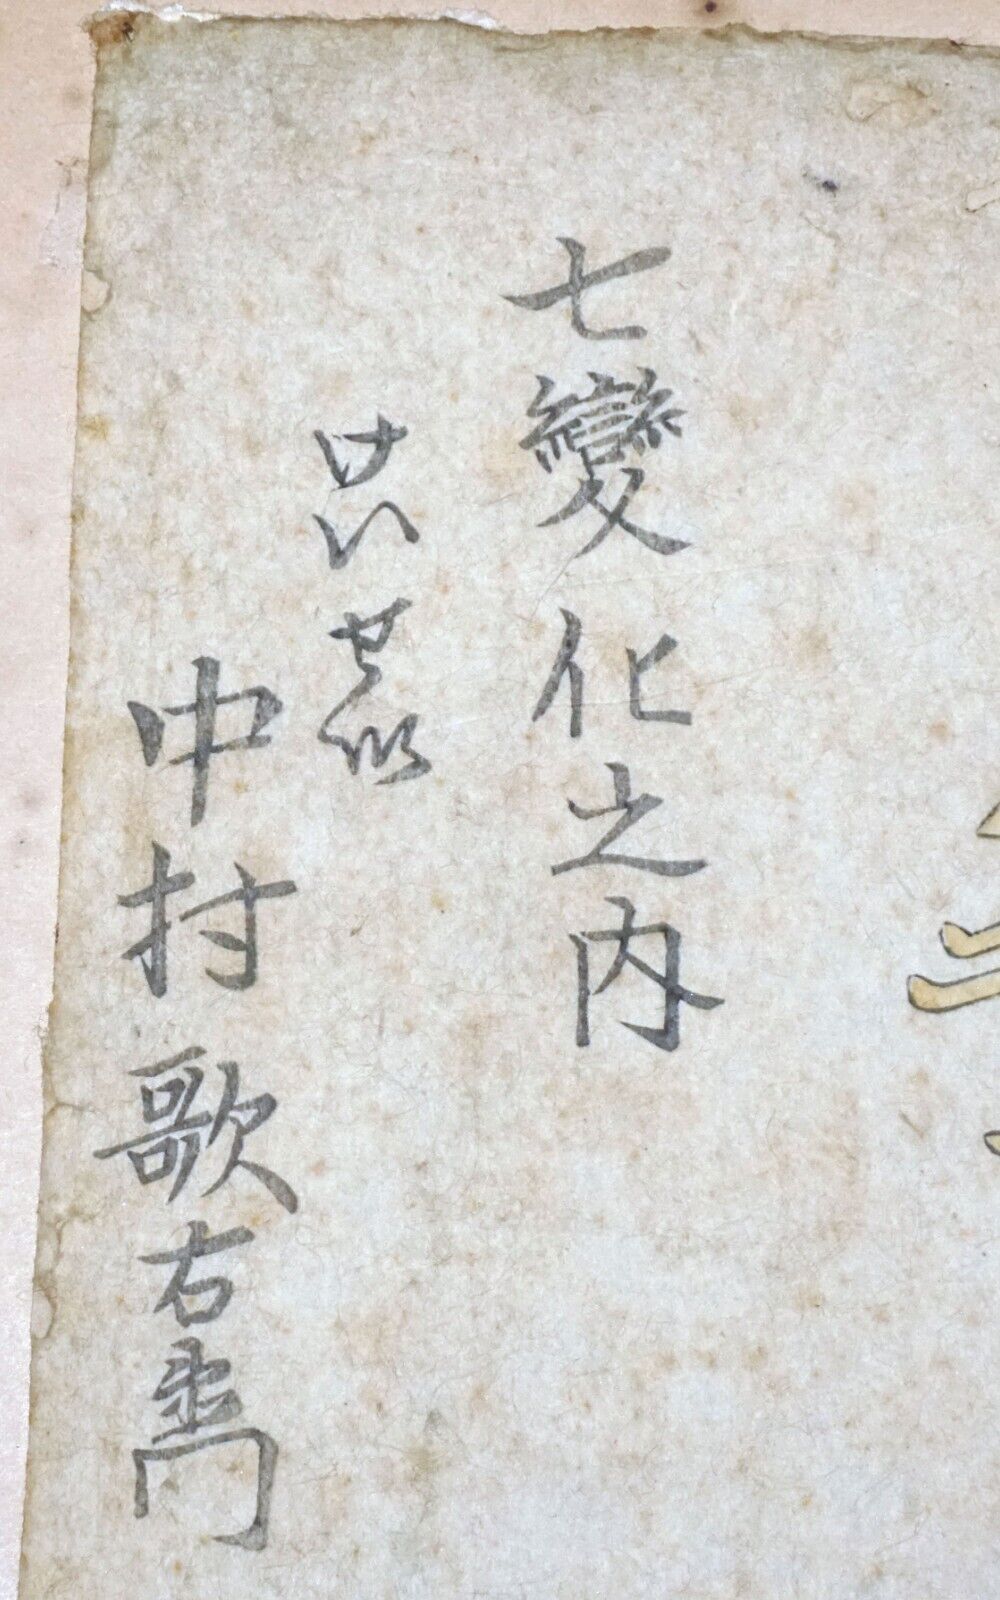 七變化之内
けいせい
中村歌右衛門